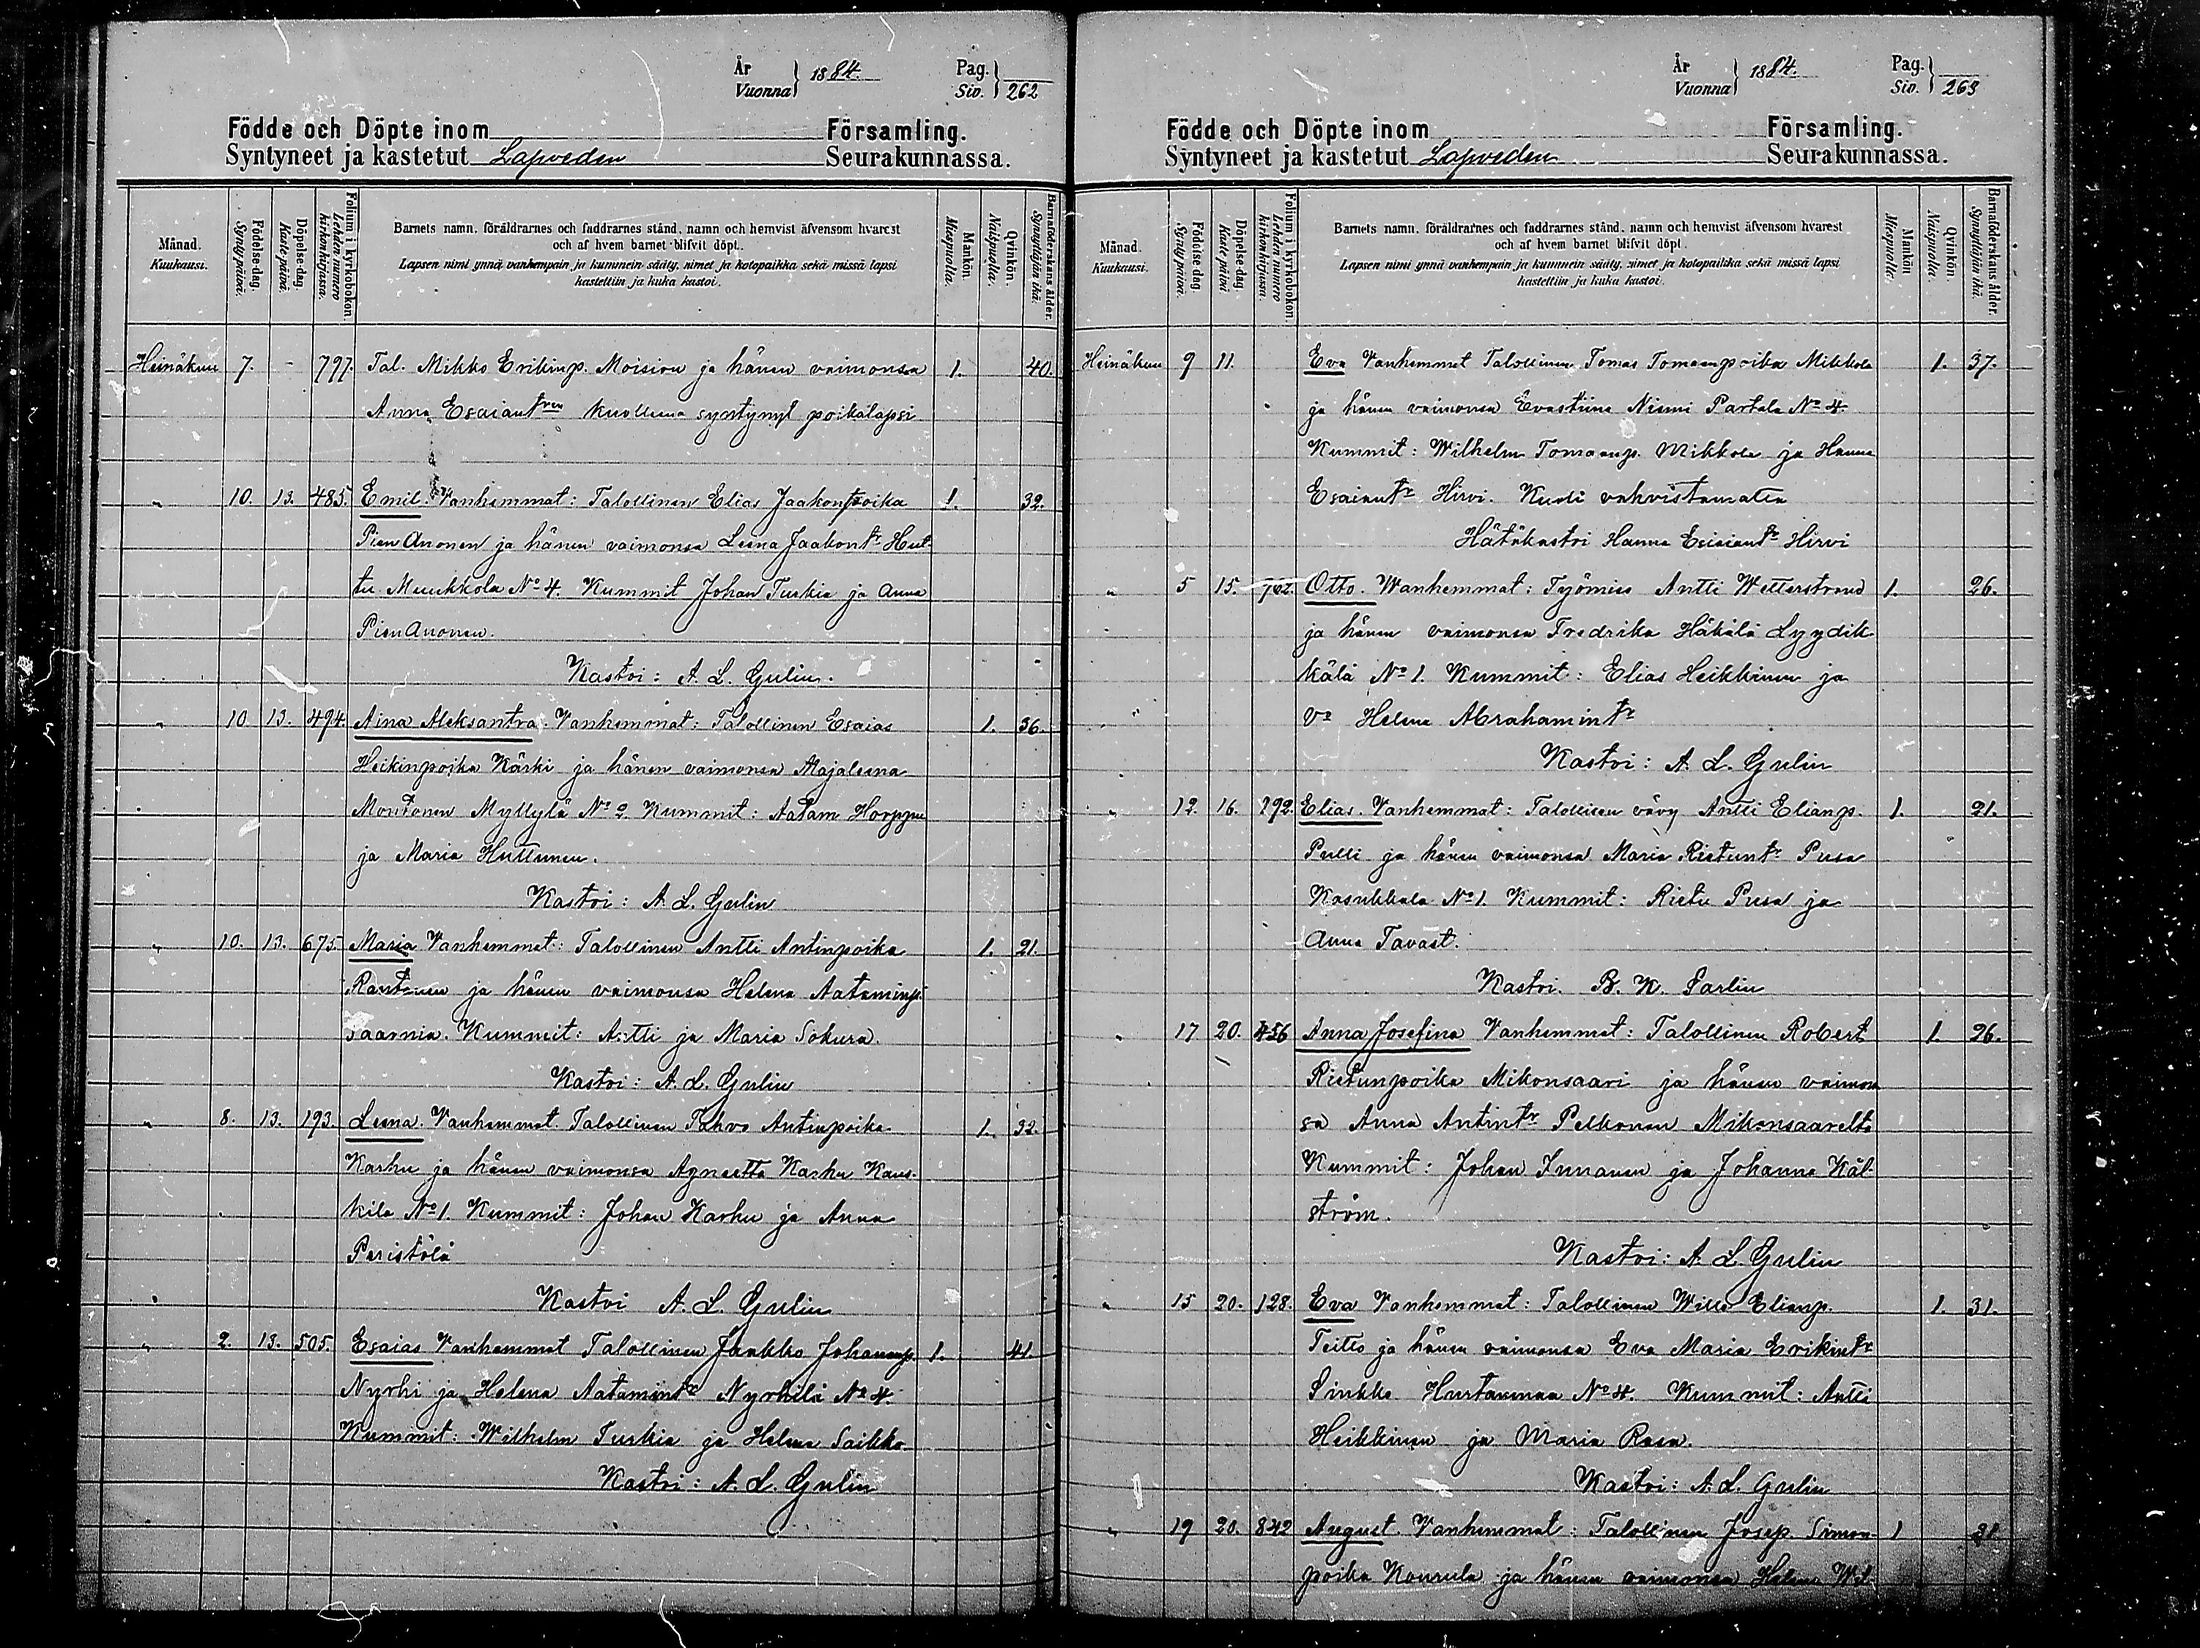 År
Vuonna } 1884. Pag.
Siv. } 262
Födde och Döpte inom Församling.
Syntyneet ja kastetut Lapveden Seurakunnassa.
Månad.
Kuukausi.
Födelse-dag.
Synty päivä.
Döpelse-dag.
Kaste päivä.
Folium i kyrkoboken.
Lehden numero kirkonkirjassa.
Barnets namn, föräldrarnes och faddrarnes stånd, namn och hemvist äfvensom hvarest
och af hvem barnet blifvit döpt.
Lapsen nimi ynnä vanhempain ja kummein sääty, nimet ja kotopaikka sekä missä lapsi
kastettiin ja kuka kastoi.
Mankön.
Miespuolia.
Qvinkön.
Naispuolia.
Barnaföderskans ålder.
Synnyttäjän ikä.
Heinäkuu 7. - 797. Tal. Mikko Erikinp. Moision ja hänen vaimonsa 1. 40.
Anna Esaiantren kuolleena syntynyt poikalapsi
" 10. 13. 485. Emil. Vanhemmat: Talollinen Elias Jaakonpoika 1. 32.
Pien Anonen ja hänen vaimonsa Leena Jaakontr Hut-
tu Muukkola No 4. Kummit Johan Turkia ja Anna
Pien Anonen.
Kastoi: A. L. Gulin.
" 10. 13. 494. Aina Aleksantra. Vanhemmat: Talollinen Esaias 1. 36.
Heikinpoika Kärki ja hänen vaimonsa Majaleena
Montonen Myllylä No 2. Kummit: Aatam Horppu
ja Maria Huttunen.
Kastoi: A. L. Gulin
" 10. 13. 675 Maria Vanhemmat: Talollinen Antti Antinpoika 1. 21.
Rantanen ja hänen vaimonsa Helena Aataminp.
Saarnia. Kummit: Antti ja Maria Sokura.
Kastoi: A. L. Gulin
" 8. 13. 193. Leena. Vanhemmat Talollinen Tahvo Antinpoika 1. 32.
Karhu ja hänen vaimonsa Agneetta Karhu Kaus-
kila No 1. Kummit: Johan Karhu ja Anna
Peristölä
Kastoi A. L. Gulin
" 2. 13. 505. Esaias Vanhemmat Talollinen Jaakko Johananp. 1. 41.
Nyrhi ja Helena Aatamintr Nyrhilä No 4.
Kummit: Wilhelm Turkia ja Helena Saikko
Kastoi: A. L. Gulin
År
Vuonna } 1884. Pag.
Siv. } 263
Födde och Döpte inom Församling.
Syntyneet ja kastetut Lapveden Seurakunnassa.
Månad.
Kuukausi.
Födelse-dag.
Synty päivä.
Döpelse-dag.
Kaste päivä.
Folium i kyrkoboken.
Lehden numero kirkonkirjassa.
Barnets namn, föräldrarnes och faddrarnes stånd, namn och hemvist äfvensom hvarest
och af hvem barnet blifvit döpt.
Lapsen nimi ynnä vanhempain ja kummein sääty, nimet ja kotopaikka sekä missä lapsi
kastettiin ja kuka kastoi.
Mankön.
Miespuolia.
Qvinkön.
Naispuolia.
Barnaföderskans ålder.
Synnyttäjän ikä.
Heinäkuu 9 11. Eva Vanhemmat Talollinen Tomas Tomaanpoika Mikkola 1. 37.
ja hänen vaimonsa Evastiina Niemi Partala No 4.
Kummit: Wilhelm Tomaanp. Mikkola ja Hanna
Esaiantr Hirvi. Kuoli vahvistamatta
Hätäkastoi Hanna Esaiantr Hirvi
" 5 15. Otto. Wanhemmat: Työmies Antti Wetterstrand 1. 26.
ja hänen vaimonsa Fredrika Häkälä Lyydik-
kälä No 1. Kummit: Elias Heikkinen ja
vo Helena Abrahamintr
Kastoi: A. L. Gulin
" 12. 16. 292. Elias. Vanhemmat: Talollisen vävy Antti Elianp. 1. 21.
Pulli ja hänen vaimonsa Maria Rietuntr Pusa
Kasukkala No 1. Kummit: Rietu Pusa ja
Anna Tavast.
Kastoi. B. K. Sarlin
" 17 20. 456 Anna Josefina Vanhemmat: Talollinen Robert 1. 26.
Rietunpoika Mikonsaari ja hänen vaimon
sa Anna Antintr Pelkonen Mikonsaarelta
Kummit: Johan Innanen ja Johanna Käl-
ström.
Kastoi: A. L. Gulin
" 15 20. 128. Eva Vanhemmat: Talollinen Wille Elianp. 1. 31.
Teitto ja hänen vaimonsa Eva Maria Erikintr
Sinkko Hurtanmaa No 4. Kummit: Antti
Heikkinen ja Maria Rasa.
Kastoi: A. L. Gulin
" 19 20. 842 August Vanhemmat: Talollinen Josep. Simon 1
poika Kourula ja hänen vaimonsa Helena Wil-